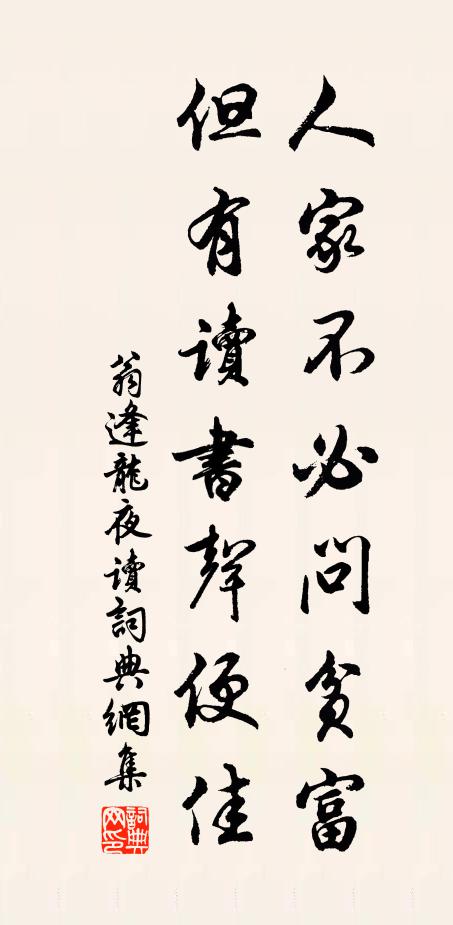 人家不必問貧富
但有讀書聲便佳
翁逢龍夜讀詞典網集
詞典網印